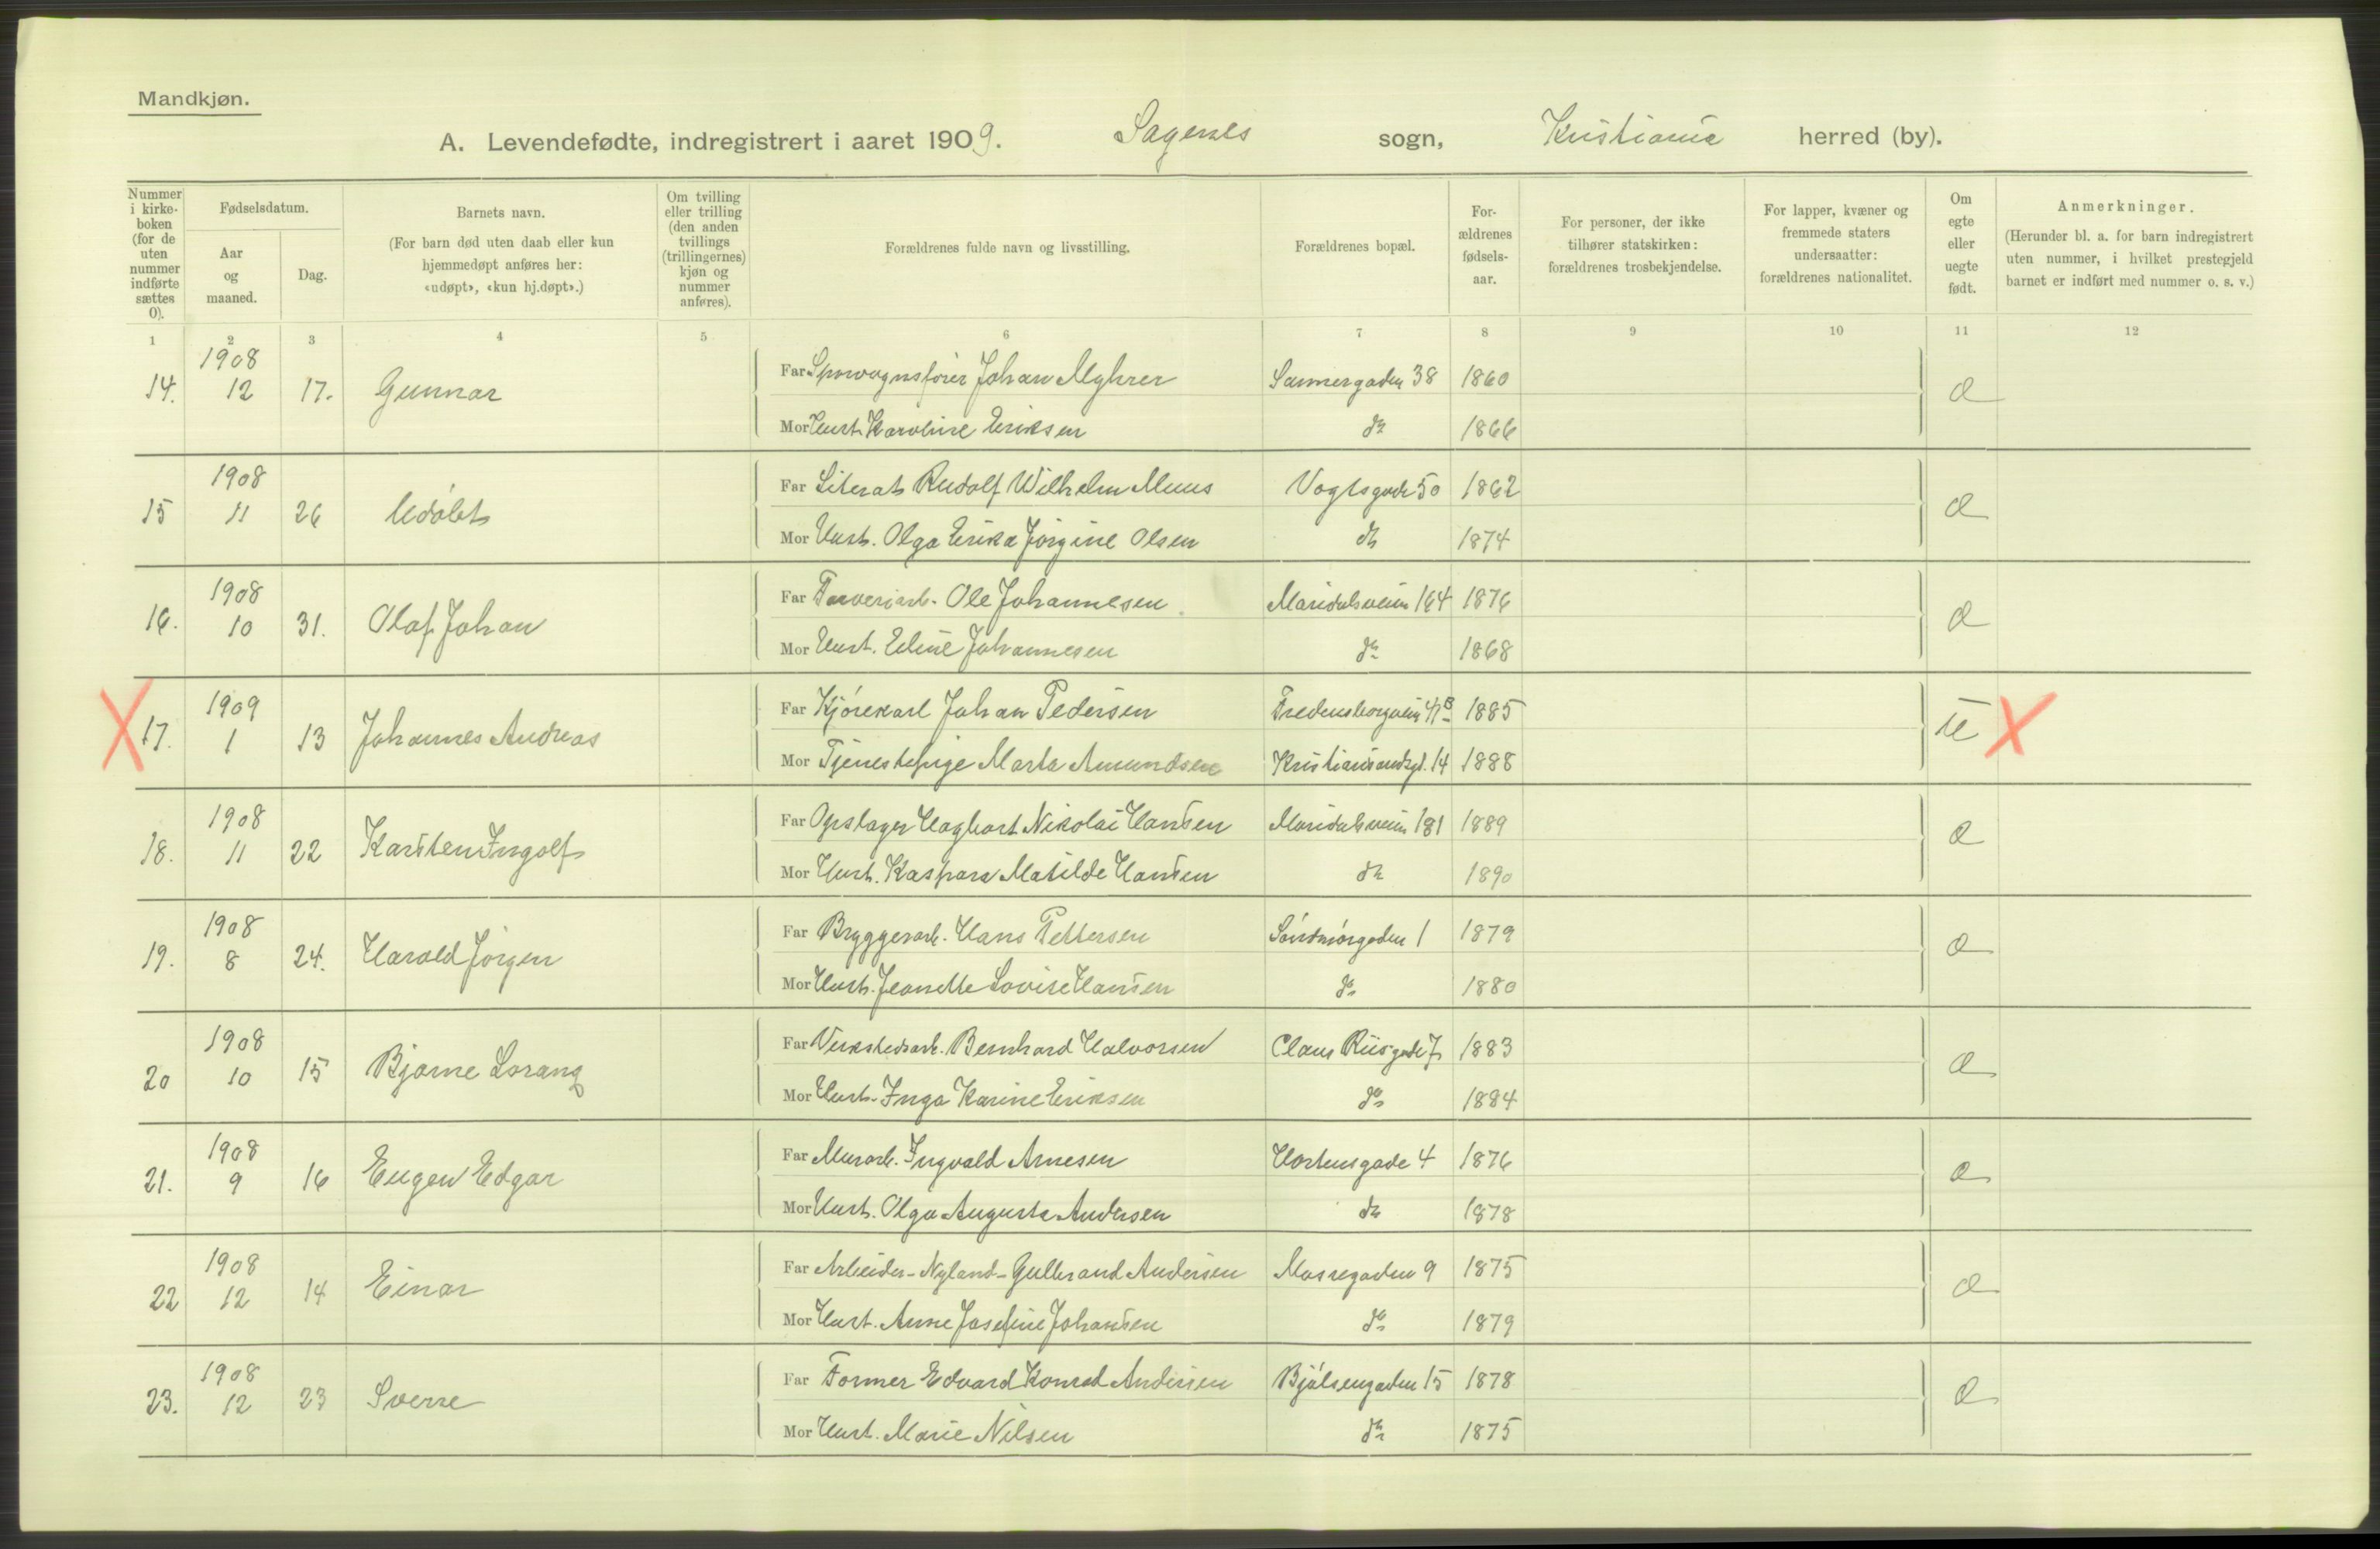 Mandkjøn.
A. Levendefødte, indregistrert i aaret 1909. Sagenes sogn, Kristiania herred (by).
Nummer i kirke-boken (for de uten nummer indførte sættes 0).
Fødselsdatum.
Aar og maaned.
Dag.
Barnets navn.
(For barn død uten daab eller kun hjemmedøpt anføres her: «udøpt», «kun hj.døpt».)
Om tvilling eller trilling (den anden tvillings (trillingernes) kjøn og nummer anføres).
Forældrenes fulde navn og livsstilling.
Forældrenes bopæl.
For-ældrenes fødsels-aar.
For personer, der ikke tilhører statskirken: forældrenes trosbekjendelse.
For lapper, kvæner og fremmede staters undersaatter: forældrenes nationalitet.
Om egte eller uegte født.
Anmerkninger.
(Herunder bl. a. for barn indregistrert uten nummer, i hvilket prestegjeld barnet er indført med nummer o. s. v.)
1 2 3 4 5 6 7 8 9 10 11 12
1908
14. 12 17. Gunnar
Far Sporvognsfører Johan Myhrer Sannergaden 38 1860
Mor Hust. Karoline Eriksen do 1866
1908
15 11 26 Udøbt
Far Literat Rudolf Wilhelm Muus Vogtsgade 50 1862
Mor Hust. Olga Erika Jørgine Olsen do 1874
1908
16. 10 31. Olaf Johan
Far Farveriarb. Ole Johannesen Maridalsveien 164 1876
Mor Hust. Eline Johannesen do 1868
1909
X 17. 1 13 Johannes Andreas
Far Kjørekarl Johan Pedersen Fredensborgveien 41B 1885
Mor Tjenestepige Marta Amundsen Kristiansandsgd. 14 1888
X
1908
18. 11 22 Karsten Ingolf
Far Opslager Hagbart Nikolai Hansen Maridalsveien 181 1889
Mor Hust. Kaspara Matilde Hansen do 1890
1908
19. 8 24. Harald Jørgen
Far Bryggeriarb. Hans Pettersen Søndmørgaden 1 1879
Mor Hust. Jeanette Lovise Hansen do 1880
1908
20 10 15 Bjarne Lorang
Far Verkstedsarb. Bernhard Halvorsen Claus Riisgade 7 1883
Mor Hust. Inga Karine Eriksen do 1884
1908
21. 9 16 Eugen Edgar
Far Murarb. Ingvald Arnesen Hortensgade 4 1876
Mor Hust. Olga Augusta Andersen do 1878
1908
22 12 14 Einar
Far Arbeider-Nyland-Gulbrand Andersen Mossegaden 9 1875
Mor Hust. Anne Josefine Johansen do 1879
1908
23. 12 23 Sverre
Far Former Edvard Konrad Andersen Bjølsengaden 15 1878
Mor Hust. Marie Nilsen do 1875